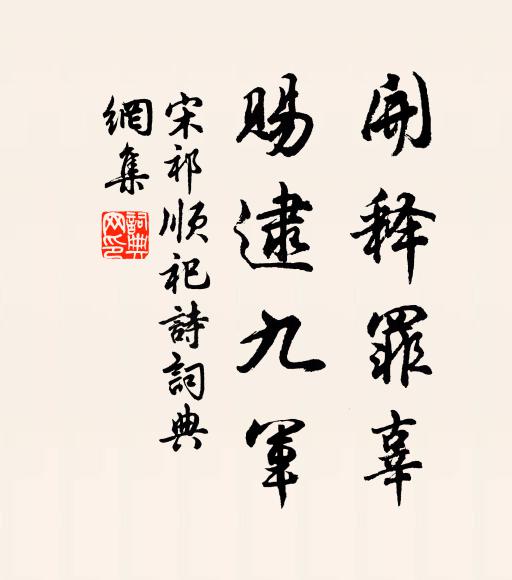 開释罪辜
賜逮九軍
宋祁順祀詩詞典
網集
詞典
网印